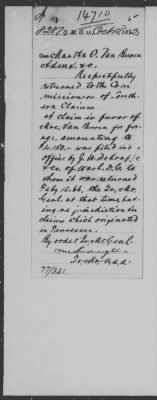 14710
Martha A. Van Buren
Respectfully
returned to the Com
missioners of South
ern Claims
A claim in favor of
Mrs. Van Buren for for
age, amounting to
was filed in
office by G. W.
& Co. of Wash. D.C. to
whom it was returned
Feby 15. 66, the Qr. Mr.
Genl. at that time hav
ing no jurisdiction in
claims which originated
in Tennessee.
By order Qr. Mr. Genl.
Qr. Mr. U.S.A.
77/321.